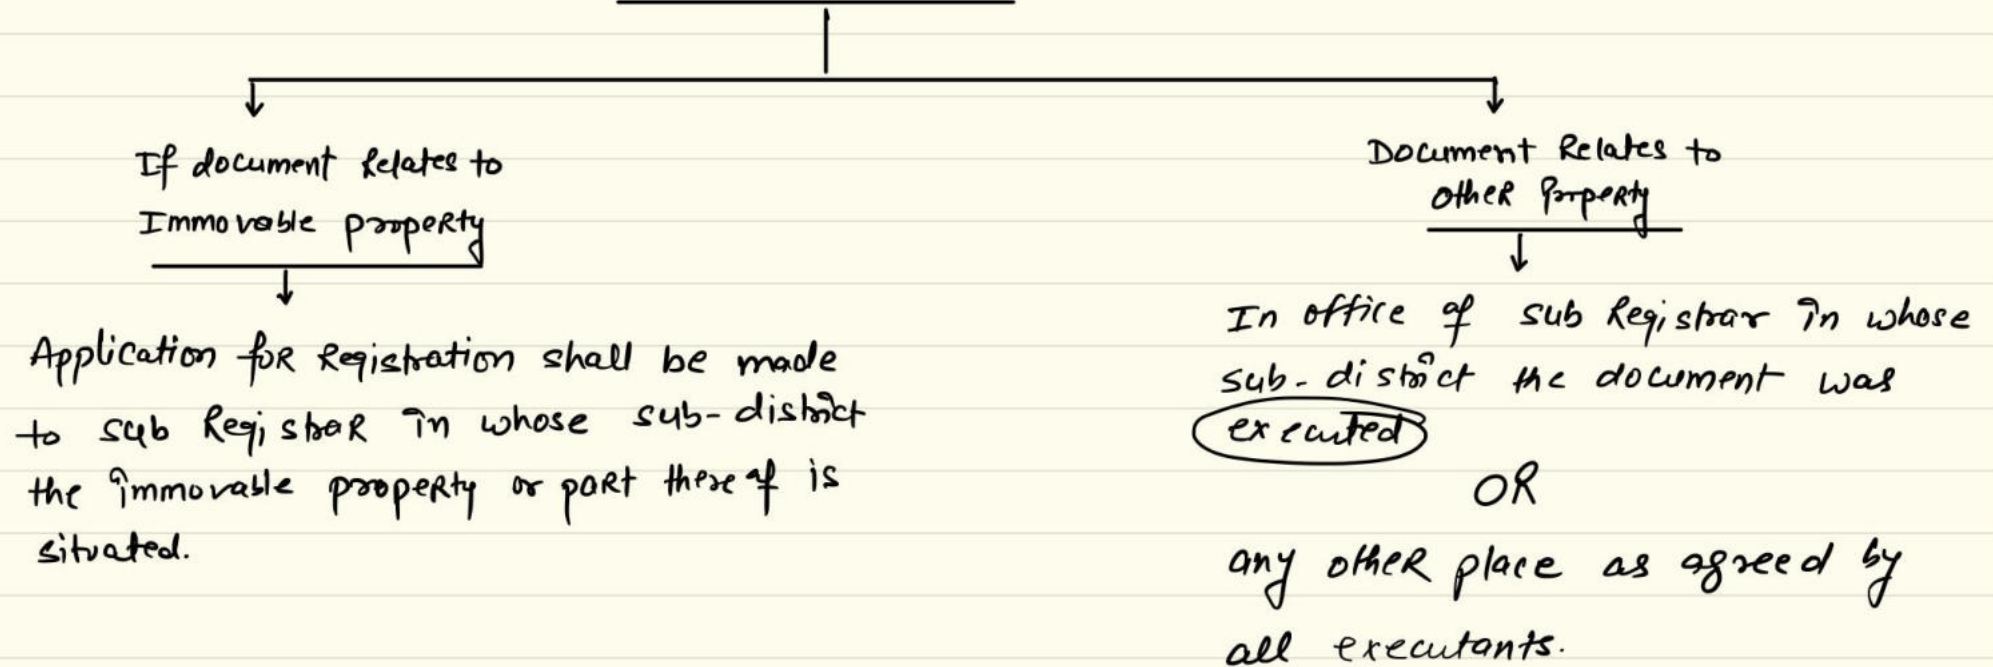 If document Relates to
Immovable property
Application for Registration shall be made
to sub Registrar in whose sub-district
the immovable property or part thereof is
situated.
Document Relates to
other Property
In office of sub Registrar in whose
sub-district the document was
executed
OR
any other place as agreed by
all executants.